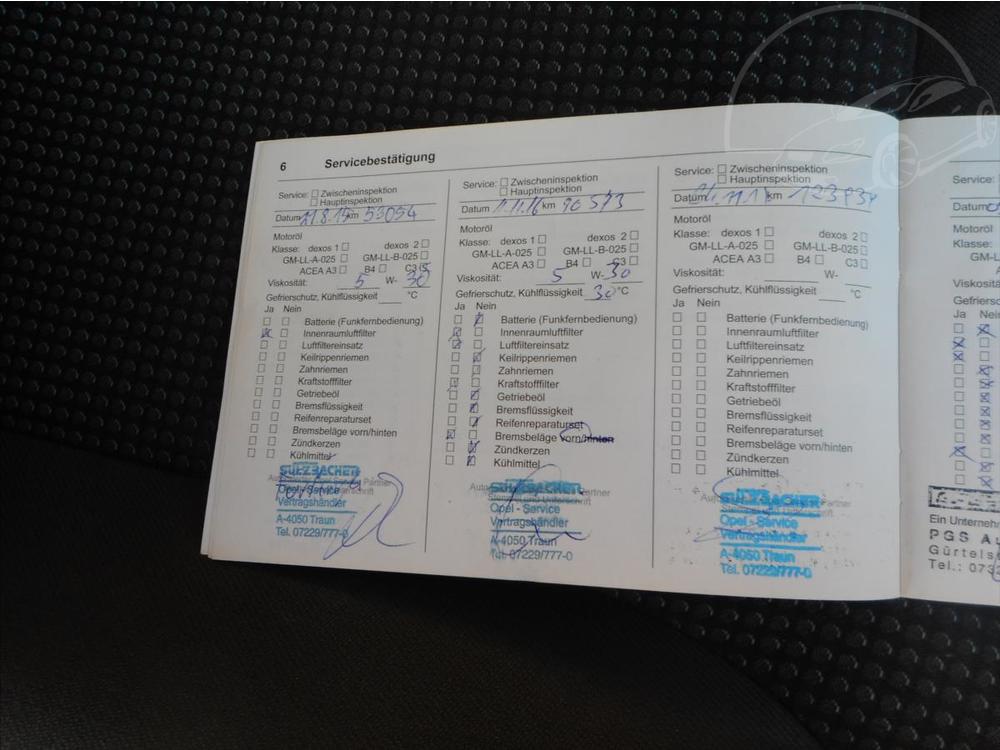 6 Servicebestätigung
Service: ☐ Zwischeninspektion
☐ Hauptinspektion
Datum 21.8.15 km 53054
Motoröl
Klasse: dexos 1 ☐ dexos 2 ☐
GM-LL-A-025 ☐ GM-LL-B-025 ☐
ACEA A3 ☐ B4 ☐ C3 ☐
Viskosität: 5 W- 30
Gefrierschutz, Kühlflüssigkeit °C
Ja Nein
☐ ☐ Batterie (Funkfernbedienung)
☒ ☐ Innenraumluftfilter
☐ ☐ Luftfiltereinsatz
☐ ☐ Keilrippenriemen
☐ ☐ Zahnriemen
☐ ☐ Kraftstofffilter
☐ ☐ Getriebeöl
☐ ☐ Bremsflüssigkeit
☐ ☐ Reifenreparaturset
☐ ☐ Bremsbeläge vorn/hinten
☐ ☐ Zündkerzen
☐ ☐ Kühlmittel
SULZBACHER
Partner
Opel - Service
Vertragshändler
A-4050 Traun
Tel. 07229/777-0
Service: ☐ Zwischeninspektion
☐ Hauptinspektion
Datum 11.11.16 km 90573
Motoröl
Klasse: dexos 1 ☐ dexos 2 ☐
GM-LL-A-025 ☐ GM-LL-B-025 ☐
ACEA A3 ☐ B4 ☐ C3 ☐
Viskosität: 5 W- 30
Gefrierschutz, Kühlflüssigkeit 30 °C
Ja Nein
☐ ☒ Batterie (Funkfernbedienung)
☒ ☐ Innenraumluftfilter
☒ ☐ Luftfiltereinsatz
☐ ☒ Keilrippenriemen
☐ ☒ Zahnriemen
☒ ☐ Kraftstofffilter
☐ ☒ Getriebeöl
☐ ☒ Bremsflüssigkeit
☐ ☒ Reifenreparaturset
☒ ☐ Bremsbeläge vorn/hinten
☐ ☒ Zündkerzen
☐ ☒ Kühlmittel
SULZBACHER
Partner
Opel - Service
Vertragshändler
A-4050 Traun
Tel. 07229/777-0
Service: ☐ Zwischeninspektion
☐ Hauptinspektion
Datum km
Motoröl
Klasse: dexos 1 ☐ dexos 2 ☐
GM-LL-A-025 ☐ GM-LL-B-025 ☐
ACEA A3 ☐ B4 ☐ C3 ☐
Viskosität: W-
Gefrierschutz, Kühlflüssigkeit °C
Ja Nein
☐ ☐ Batterie (Funkfernbedienung)
☐ ☐ Innenraumluftfilter
☐ ☐ Luftfiltereinsatz
☐ ☐ Keilrippenriemen
☐ ☐ Zahnriemen
☐ ☐ Kraftstofffilter
☐ ☐ Getriebeöl
☐ ☐ Bremsflüssigkeit
☐ ☐ Reifenreparaturset
☐ ☐ Bremsbeläge vorn/hinten
☐ ☐ Zündkerzen
☐ ☐ Kühlmittel
SULZBACHER
Partner
Opel - Service
Vertragshändler
A-4050 Traun
Tel. 07229/777-0
Service:
Datum
Motoröl
Klasse:
Viskositä
Gefriers
Ja Nein
Ein Unterneh
PGS Au
Gürtels
Tel.: 073